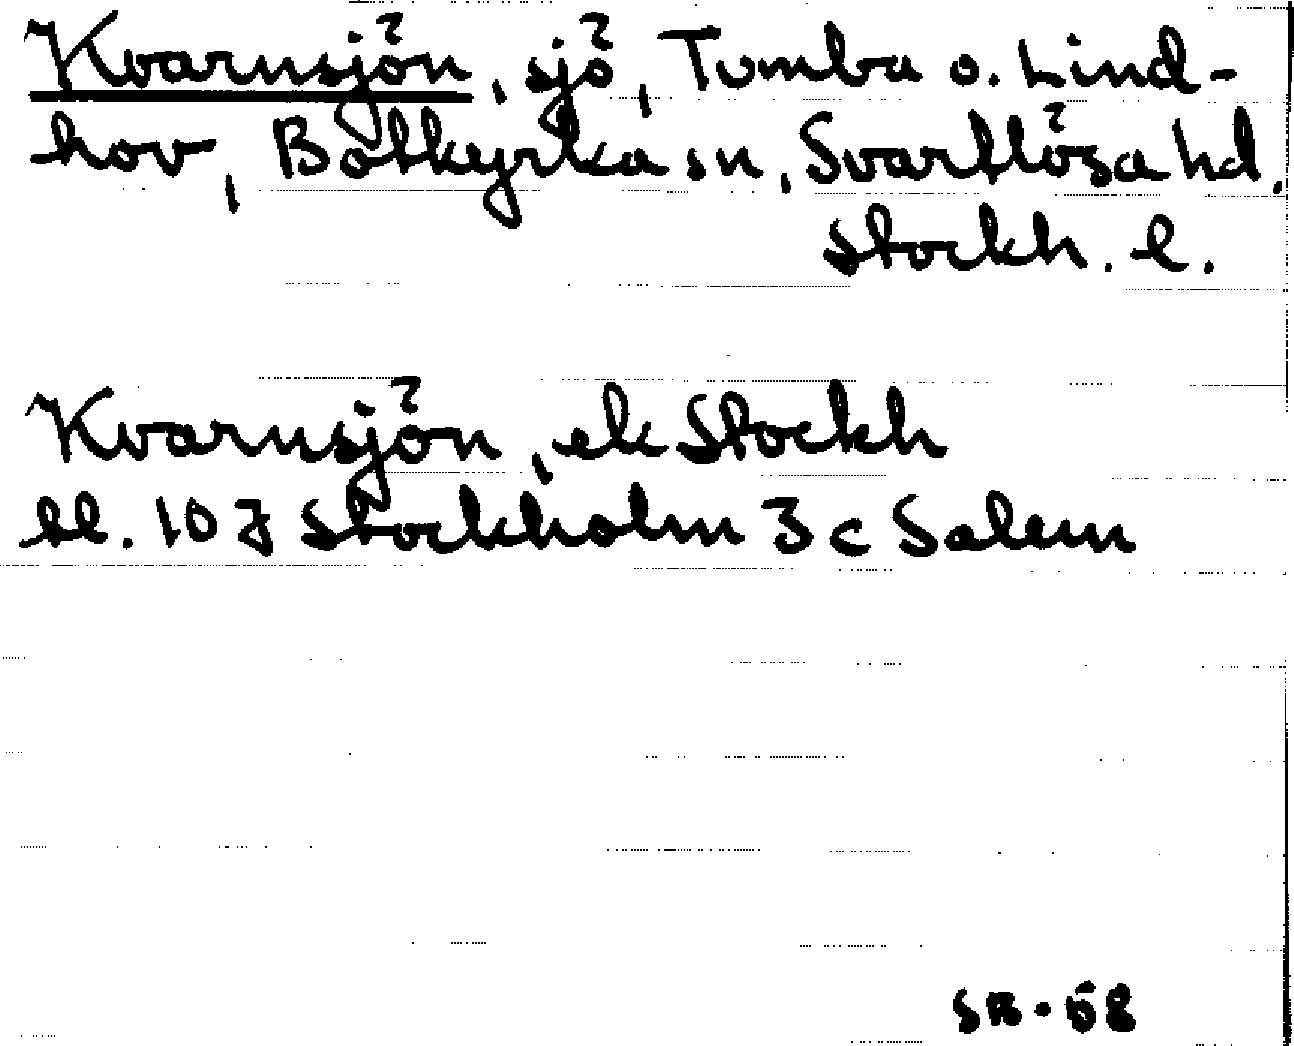 Kvarnsjön, sjö, Tumba o. Lind-
hov, Botkyrka sn, Svartlösa hd.
Stockh. l.
Kvarnsjön, ek Stockh
bl. 10 J Stockholm 3 c Salem
SB-58